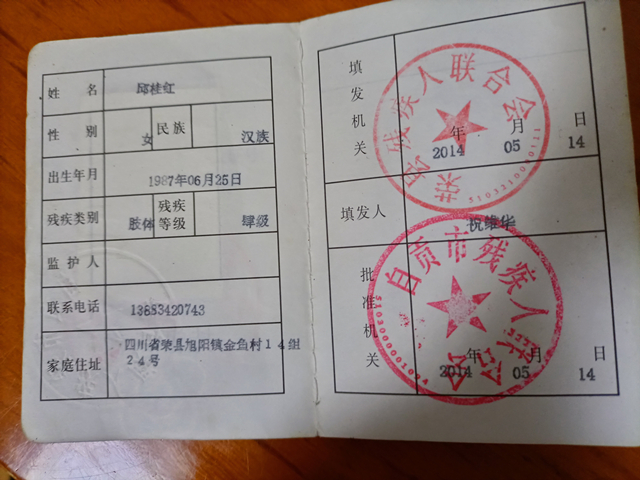 姓名 邱桂红
性别 女 民族 汉族
出生年月 1987年06月25日
残疾类别 肢体 残疾等级 肆级
监护人
联系电话 13883420743
家庭住址 四川省荣县旭阳镇金鱼村14组
24号
填发机关
荣县残疾人联合会
年 月 日
2014 05 14
填发人 祝维华
批准机关
自贡市残疾人联合会
年 月 日
2014 05 14